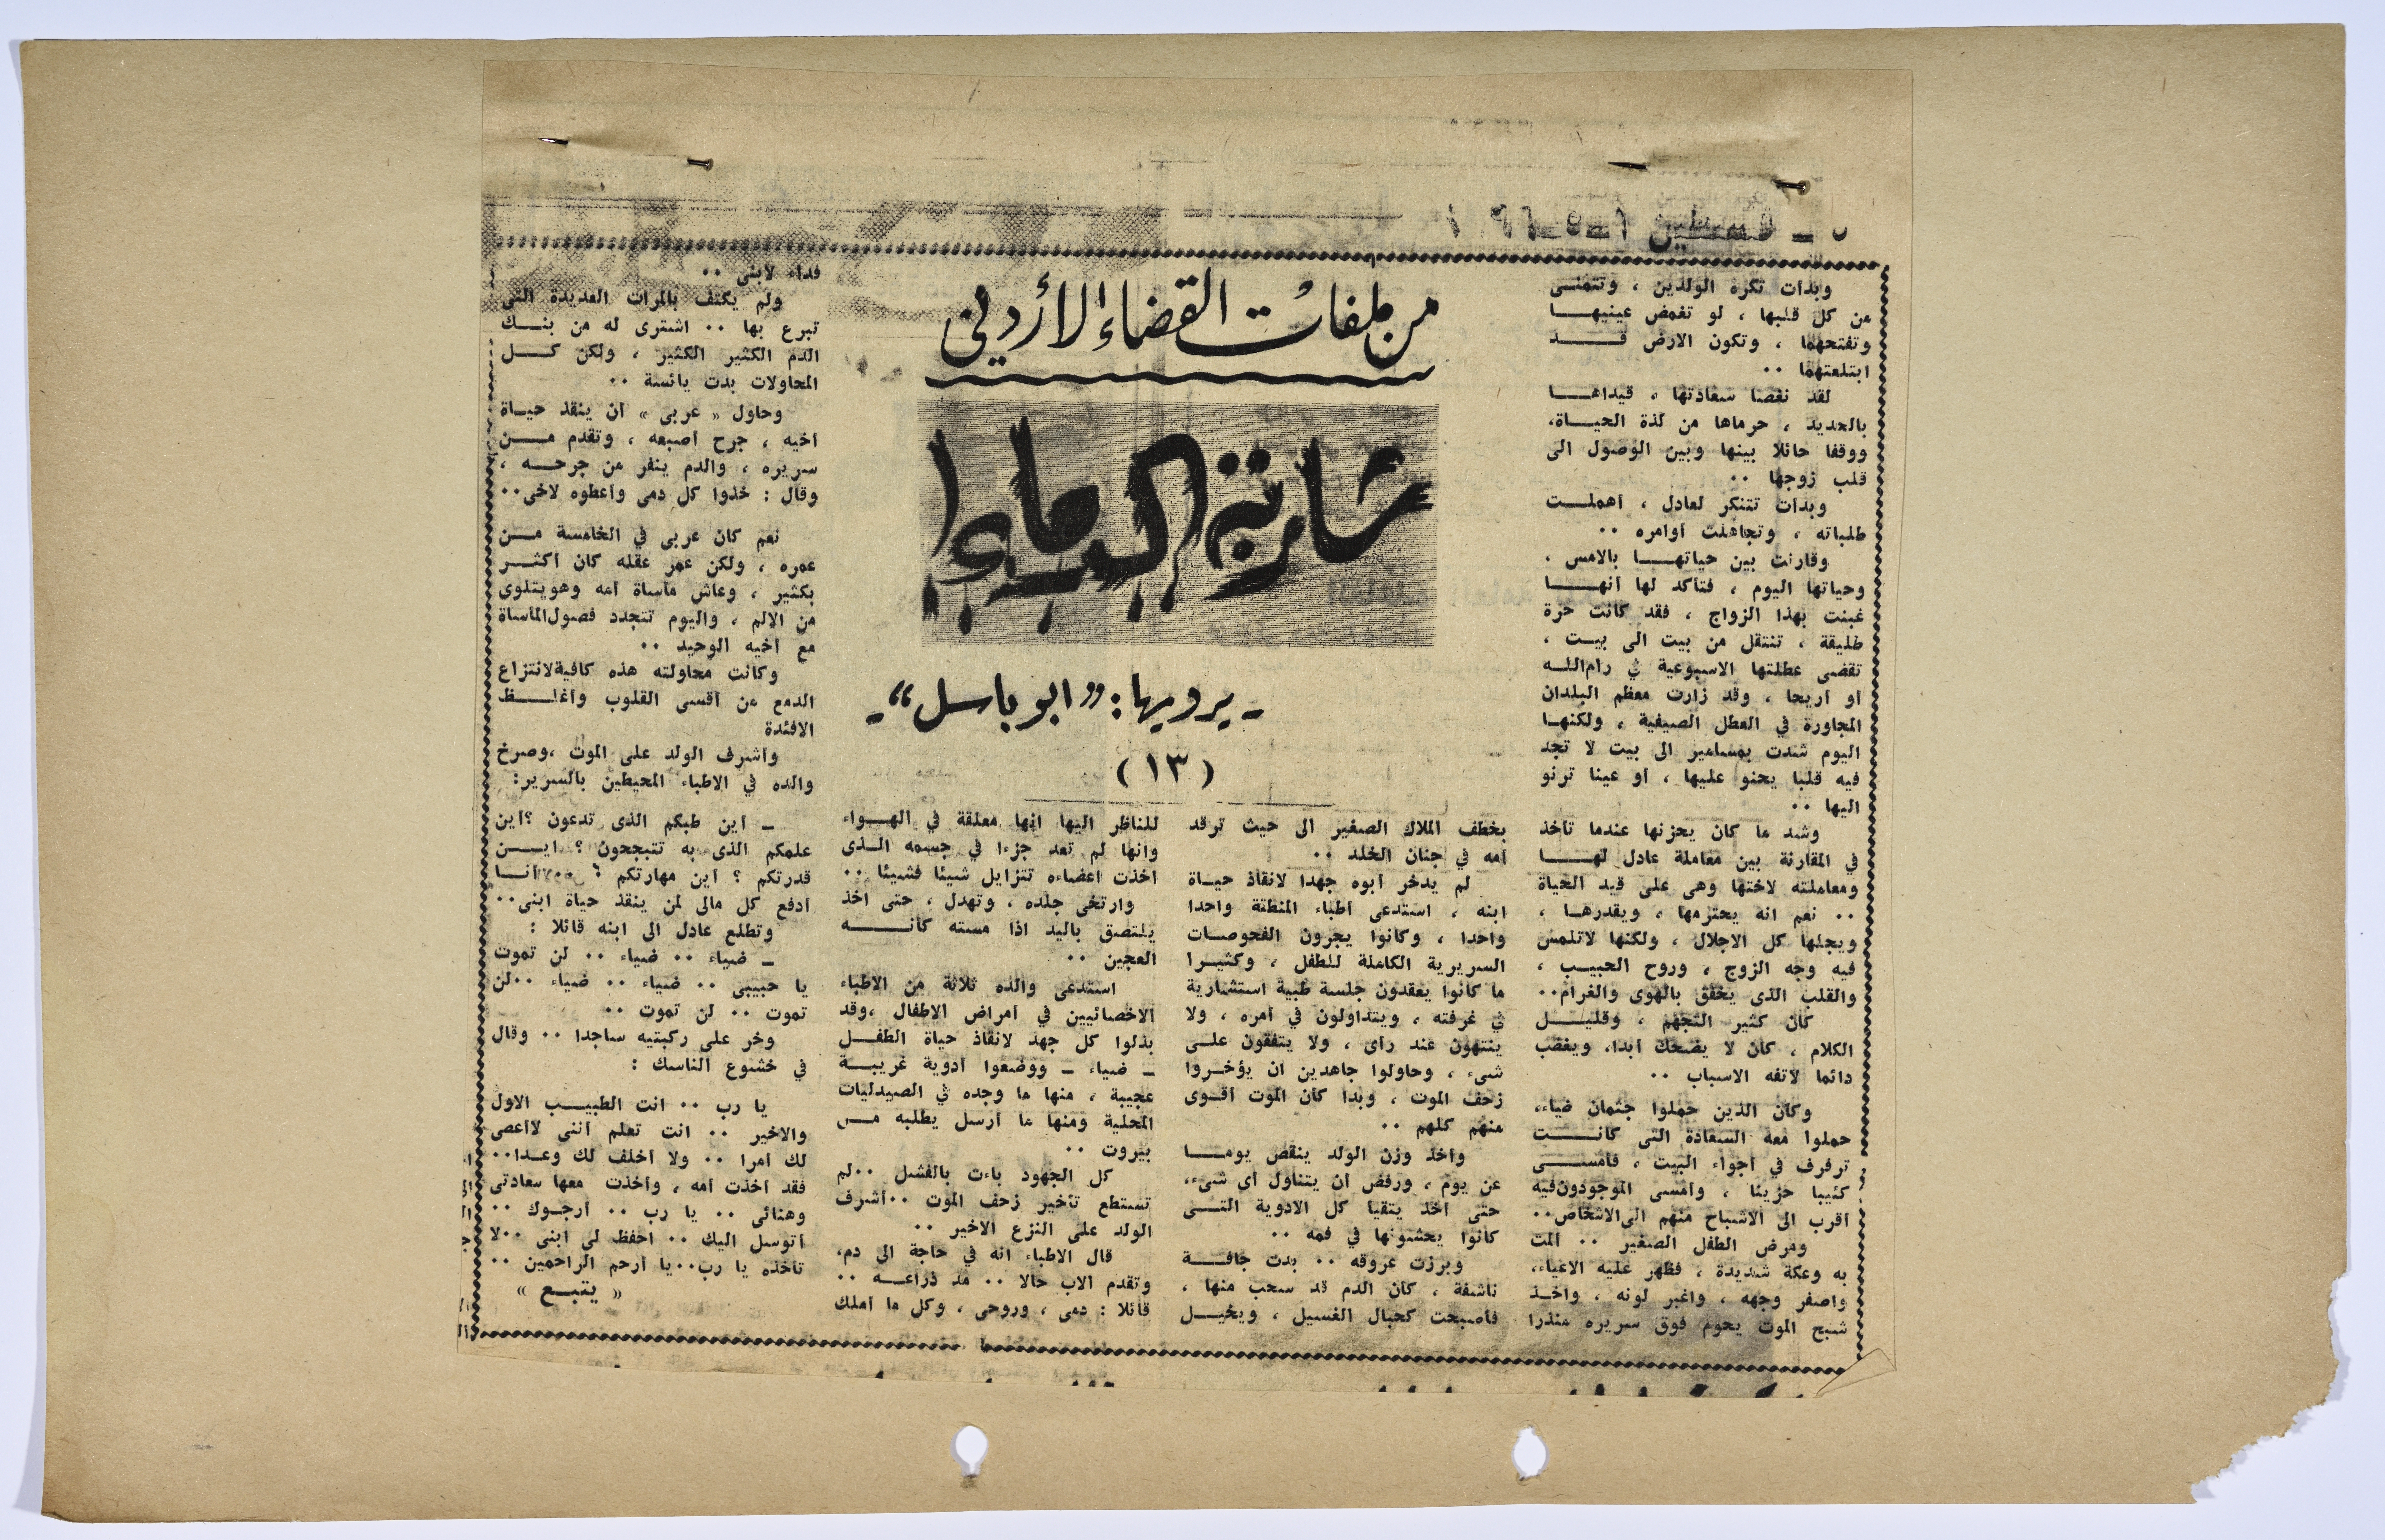 فلسطين
من ملفات القضاء الأردني
شاربة الدماء
- يرويها : "ابو باسل" -
( ١٣ )
وبدأت تكره الولدين ، وتتمنـى
من كل قلبها ، لو تغمض عينيهـا
وتفتحهما ، وتكون الارض قـد
ابتلعتهما ..
لقد نغصا سعادتها ، قيداهـا
بالحديد ، حرماها من لذة الحيـاة،
ووقفا حائلا بينها وبين الوصول الى
قلب زوجها ..
وبدأت تتنكر لعادل ، اهملـت
طلباته ، وتجاهلت اوامره ..
وقارنت بين حياتهـا بالامس ،
وحياتها اليوم ، فتأكد لها انهـا
غبنت بهذا الزواج ، فقد كانت حرة
طليقة ، تنتقل من بيت الى بيـت ،
تقضى عطلتها الاسبوعية في رام اللـه
او اريحا ، وقد زارت معظم البلدان
المجاورة في العطل الصيفية ، ولكنهـا
اليوم شدت بمسامير الى بيت لا تجد
فيه قلبا يحنو عليها ، او عينا ترنو
اليها ..
وشد ما كان يحزنها عندما تأخذ
في المقارنة بين معاملة عادل لهـا
ومعاملته لاختها وهى على قيد الحياة
.. نعم انه يحترمها ، ويقدرهـا ،
ويجلها كل الاجلال ، ولكنها لاتلمس
فيه وجه الزوج ، وروح الحبيـب ،
والقلب الذى يخفق بالهوى والغرام..
كان كثير التجهم ، وقليـل
الكلام ، كان لا يضحك ابدا، ويغضب
دائما لاتفه الاسباب ..
وكأن الذين حملوا جثمان ضياء،
حملوا معه السعادة التى كانـت
ترفرف في اجواء البيت ، فأمسـى
كئيبا حزينا ، وامسى الموجودون فيه
اقرب الى الاشباح منهم الى الاشخاص..
ومرض الطفل الصغير .. المت
به وعكة شديدة ، فظهر عليه الاعياء،
واصفر وجهه ، واغبر لونه ، واخـذ
شبح الموت يحوم فوق سريره منذرا
بخطف الملاك الصغير الى حيث ترقد
امه في جنان الخلد ..
لم يدخر ابوه جهدا لانقاذ حيـاة
ابنه ، استدعى اطباء المنطقة واحدا
واحدا ، وكانوا يجرون الفحوصـات
السريرية الكاملة للطفل ، وكثيـرا
ما كانوا يعقدون جلسة طبية استشارية
في غرفته ، ويتداولون في امره ، ولا
ينتهون عند رأى ، ولا يتفقون علـى
شىء ، وحاولوا جاهدين ان يؤخـروا
زحف الموت ، وبدا كأن الموت اقـوى
منهم كلهم ..
واخذ وزن الولد ينقص يومـا
عن يوم ، ورفض ان يتناول اى شىء،
حتى اخذ يتقيا كل الادوية التـى
كانوا يحشونها في فمه ..
وبرزت عروقه .. بدت جافـة
ناشفة ، كأن الدم قد سحب منها ،
فأصبحت كحبال الغسيل ، ويخيـل
للناظر اليها انها معلقة في الهـواء
وانها لم تعد جزءا في جسمه الـذى
اخذت اعضاءه تتزايل شيئا فشيئا ..
وارتخى جلده ، وتهدل ، حتى اخذ
يلتصق باليد اذا مسته كأنـه
العجين ..
استدعى والده ثلاثة من الاطباء
الاخصائيين في امراض الاطفال ،وقد
بذلوا كل جهد لانقاذ حياة الطفـل
ـ ضياء ـ ووضعوا ادوية غريبـة
عجيبة ، منها ما وجده في الصيدليات
المحلية ومنها ما ارسل يطلبه مـن
بيروت ..
كل الجهود باءت بالفشل ..لم
تستطع تأخير زحف الموت ..اشرف
الولد على النزع الاخير ..
قال الاطباء انه في حاجة الى دم،
وتقدم الاب حالا .. مد ذراعـه ..
قائلا : دمى ، وروحى ، وكل ما املك
فداء لابنى ..
ولم يكتف بالمرات العديدة التى
تبرع بها .. اشترى له من بنـك
الدم الكثير الكثير ، ولكن كـل
المحاولات بدت يائسة ..
وحاول « عربى » ان ينقذ حيـاة
اخيه ، جرح اصبعه ، وتقدم مـن
سريره ، والدم ينفر من جرحـه ،
وقال : خذوا كل دمى واعطوه لاخى..
نعم كان عربى في الخامسة مـن
عمره ، ولكن عمر عقله كان اكثـر
بكثير ، وعاش مأساة امه وهو يتلوى
من الالم ، واليوم تتجدد فصول المأساة
مع اخيه الوحيد ..
وكانت محاولته هذه كافية لانتزاع
الدمع من اقسى القلوب واغلـظ
الافئدة
واشرف الولد على الموت ،وصرخ
والده في الاطباء المحيطين بالسرير:
ـ اين طبكم الذى تدعون ؟اين
علمكم الذى به تتبجحون ؟ ايـن
قدرتكم ؟ اين مهارتكم ؟ .. انـا
ادفع كل مالى لمن ينقذ حياة ابنى..
وتطلع عادل الى ابنه قائلا :
ـ ضياء .. ضياء .. لن تموت
يا حبيبى .. ضياء .. ضياء ..لن
تموت .. لن تموت ..
وخر على ركبتيه ساجدا .. وقال
في خشوع الناسك :
يا رب .. انت الطبيـب الاول
والاخير .. انت تعلم اننى لااعصى
لك امرا .. ولا اخلف لك وعـدا..
فقد اخذت امه ، واخذت معها سعادتى
وهنائى .. يا رب .. ارجـوك ..
اتوسل اليك .. احفظ لى ابنى ..لا
تأخذه يا رب..يا ارحم الراحمين ..
« يتبـع »